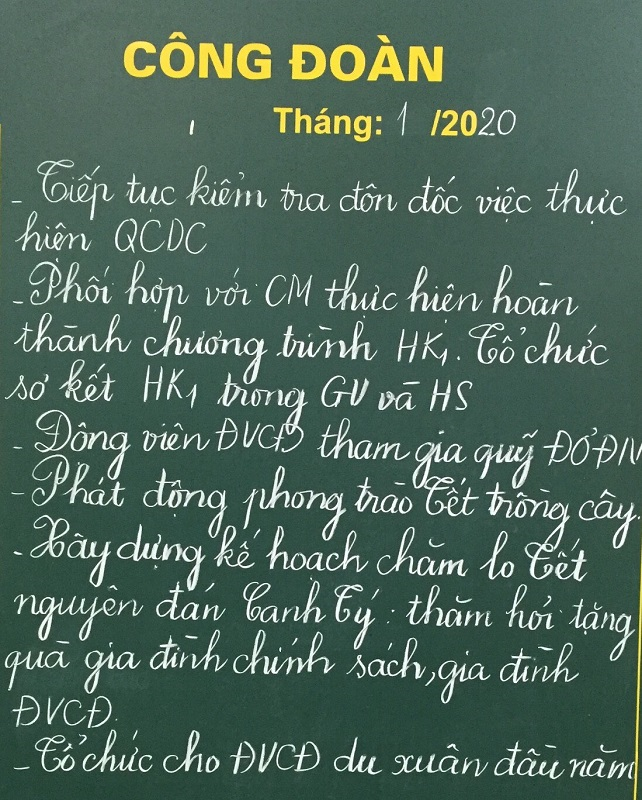 CÔNG ĐOÀN
Tháng: 1 /2020
- Tiếp tục kiểm tra đôn đốc việc thực
hiện QCDC
- Phối hợp với CM thực hiện hoàn
thành chương trình HK1. Tổ chức
sơ kết HK1 trong GV và HS
- Động viên ĐVCĐ tham gia quỹ
- Phát động phong trào Tết trồng cây.
- Xây dựng kế hoạch chăm lo Tết
nguyên đán Canh Tý: thăm hỏi tặng
quà gia đình chính sách, gia đình
ĐVCĐ.
- Tổ chức cho ĐVCĐ du xuân đầu năm